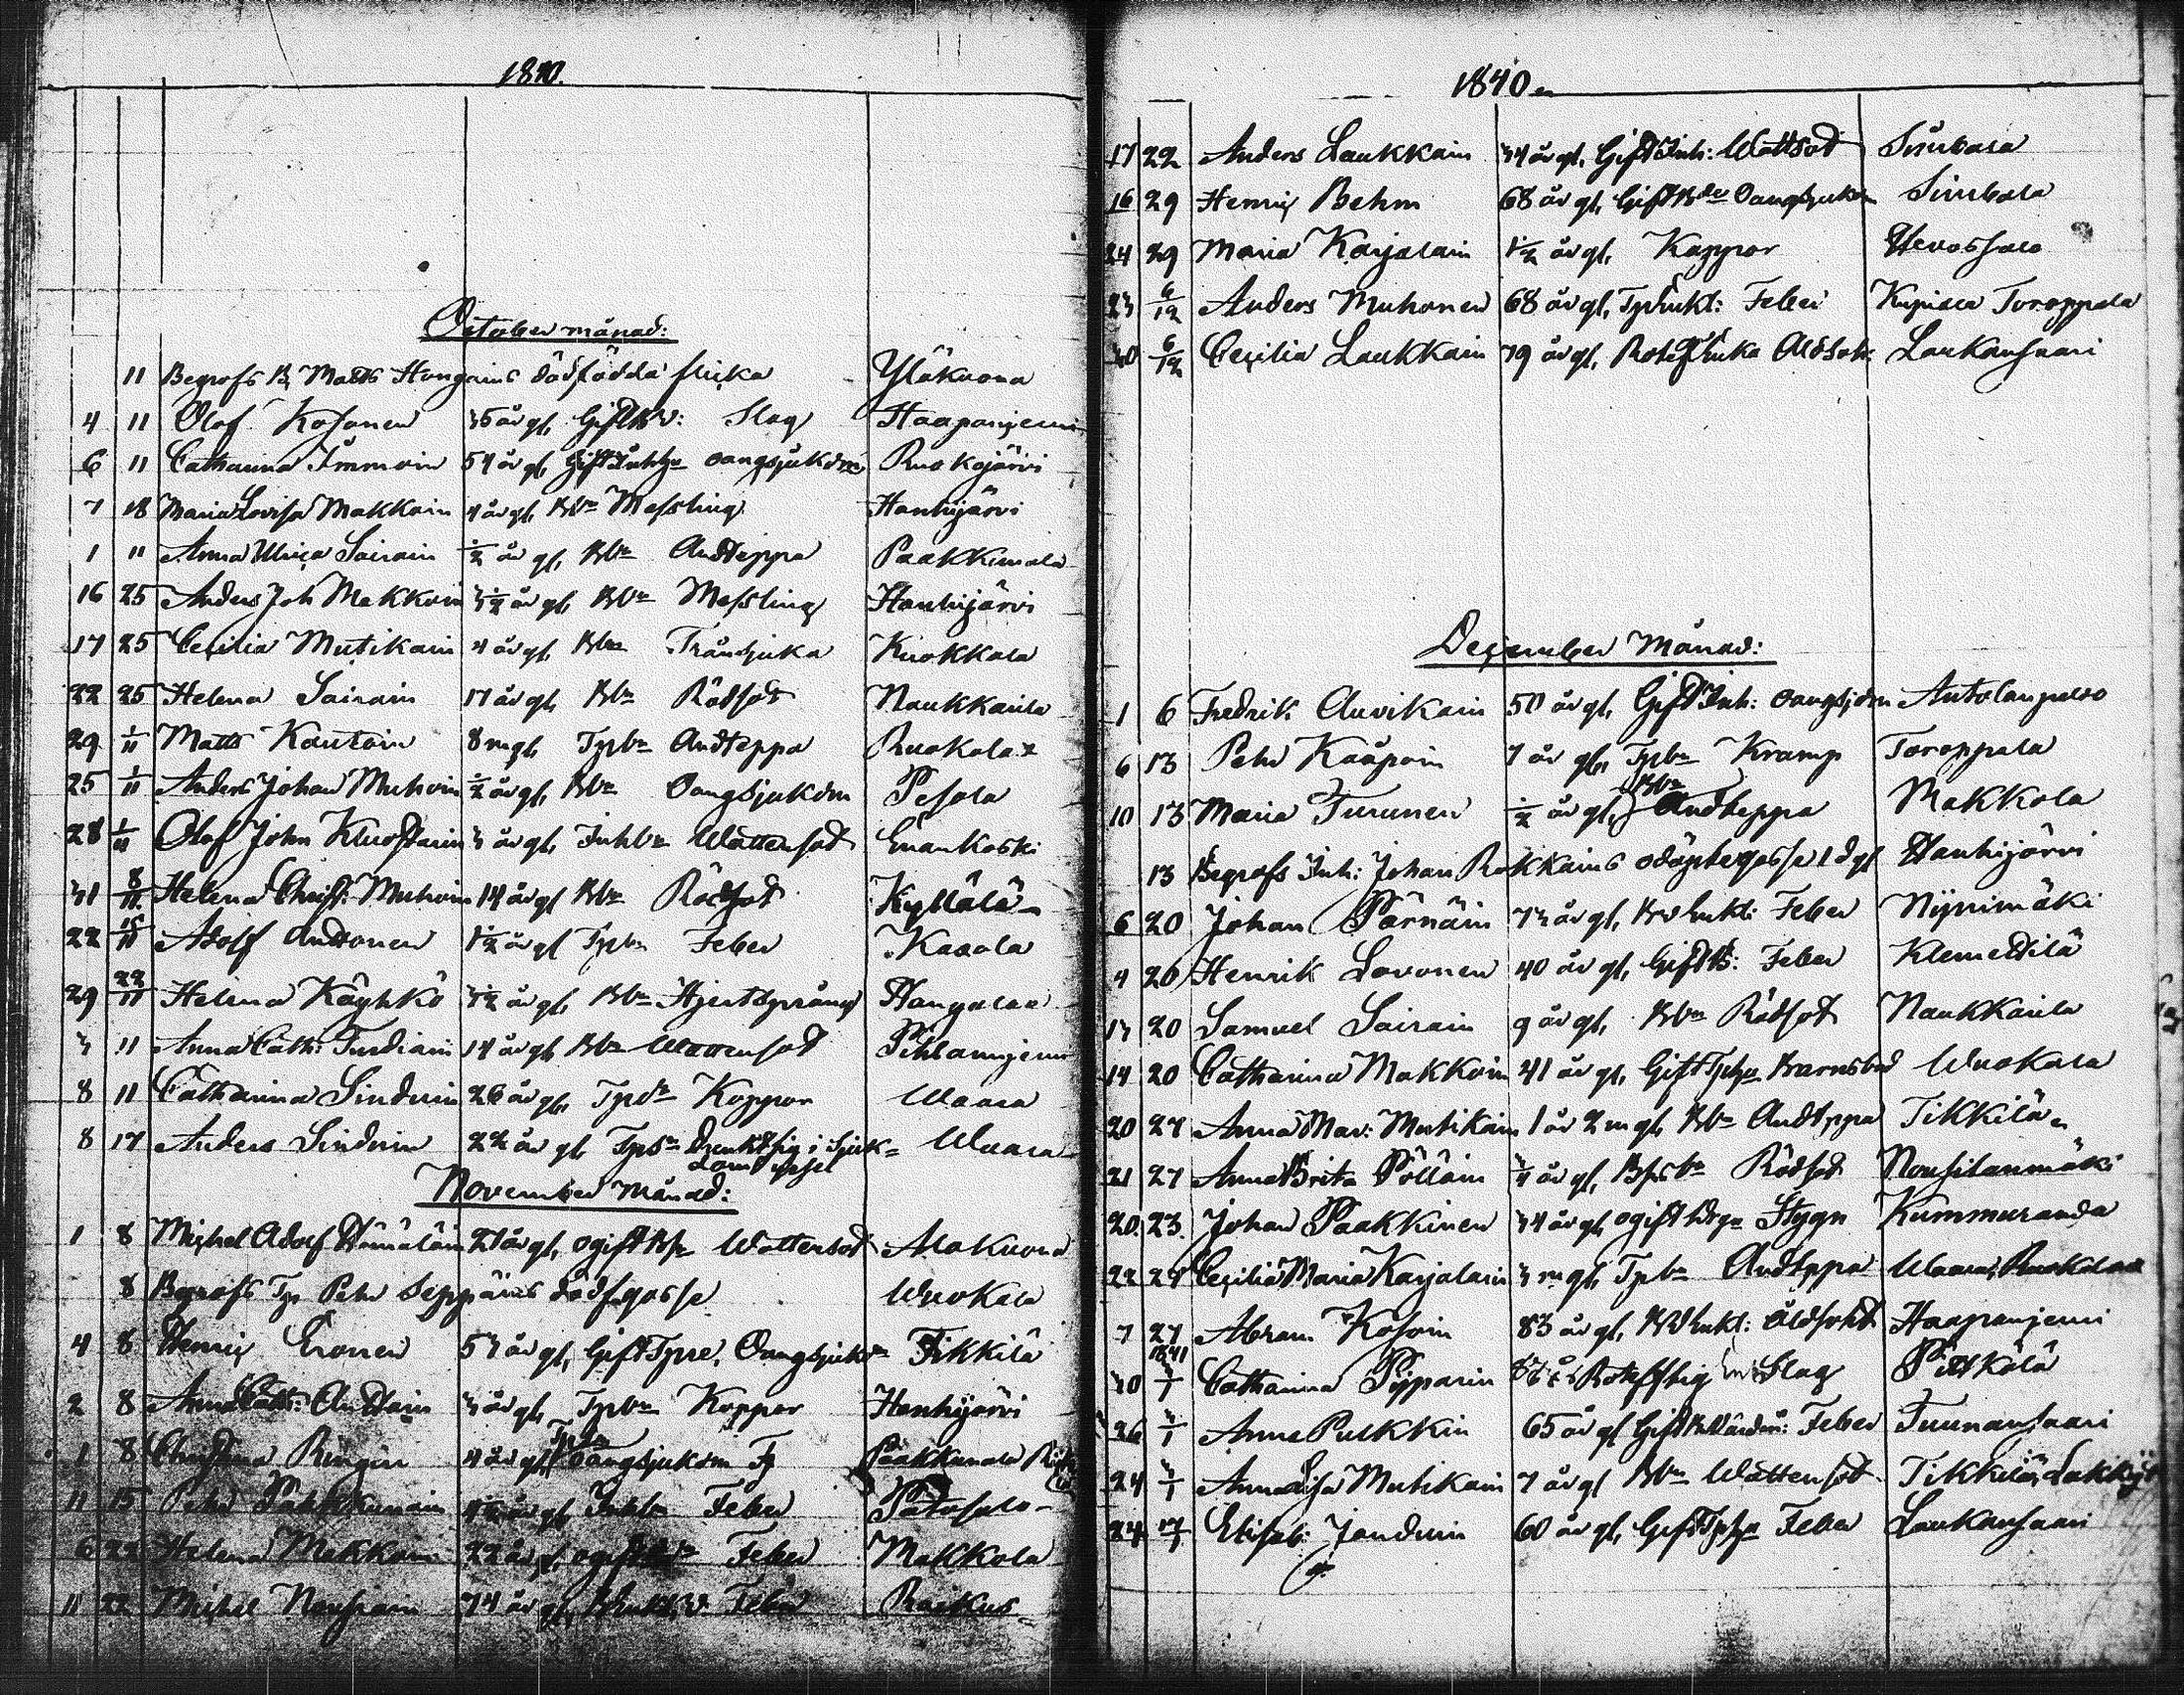 1840.
October månad:
11 Begrofs B. Matts Hongains dödfödda flicka Yläkuona
4 11 Olof Kosonen 35 år gl. Gift Bd: Slag Haapaniemi
6 11 Catharina Immoin 54 år gl. Gift Inhhu Bangsjukdm Ruokojärvi
7 18 Maria Lovisa Makkoin 4 år gl. Bbn Messling Hanhijärvi
1 11 Anna Ulrica Sairain ½ år gl. Bbn Andteppa Paakkunala
16 25 Anders Joh Makkoin 3½ år gl. Bbn Messling Hanhijärvi
17 25 Cecilia Mutikain 4 år gl. Bbn Trånsjuka Kuokkala
22 25 Helena Sairain 17 år gl. Bbn Rödsot Naukkarila
29 1/11 Matts Kautoin 8 m gl. Tpbn Andteppa Ruokola
25 1/11 Anders Johan Muhoin ½ år gl. Bbn Bangsjukdm Pesola
28 1/11 Olof John 3 år gl. Inhbn Wattensot Enankoski
31 8/11 Helena Christ: Muhoin 14 år gl Bbn Rödsot Kyllälä
22 15/11 Adolf Andtonen 1½ år gl Tpbn Feber Kasola
29 22/11 Helena Käyhkö 3½ år gl. Bbn Hjertsprång Hangalaa
3 11 Anna Cath: Turdiain 14 år gl Bbn Wattensot Pihlainjemi
8 11 Catharina Sinduin 26 år gl. Tpdr Koppor Waara
8 17 Anders Sinduin 22 år gl Tpsn Drenkt sig i Sjuk= Waara
dom yssel
November månad:
1 8 Michel Adolf Hämäläin 21 år gl. ogift Wattensot Alakuona
8 Begrofs Tp Petr Seppäins dödf. gosse Wuokala
4 8 Henric Eronen 53 år gl. Gift Tpre, Bangsjukdm Tikkilä
2 8 Anna Cath: Andtain 3 år gl. Tpbn Koppor Hanhijärvi
1 8 Christina Ringin 4 år gl. Tpbn Bangsjukdm Paakkunala
11 15 Petr Pakkunain år gl Inhbn Feber Patasalo
6 22 Helena Makkoin 22 år gl. ogift Feber Makkola
11 22 Michel Nousiain 74 år gl. Feber Raikus
1840
17 22 Anders Laukkain 34 år gl. Gift Inh: Wattsot Simbala
16 29 Henric Behm 68 år gl. Gift Bde Bangsjukdm Simbala
24 29 Maria Karjalain 1½ år gl. Koppor Hevossalo
23 6/12 Anders Muhonen 68 år gl. Tpenkl: Feber Kupiala Toroppala
30 6/12 Cecilia Laukkain 79 år gl. Rotefl Enka Aldsot: Laukansaari
December månad:
1 6 Fredrik Auvikain 50 år gl. Gift Inh: Bangsjdm
6 13 Petr Kååpoin 7 år gl. Tpbn Kramp Toroppala
10 13 Maria Turunen ½ år gl. Bbn Andteppa Makkola
13 Begrofs Inh: Johan Rokkains odöpte gosse 1 d gl Hanhijärvi
6 20 Johan Pärnäin 73 år gl. Bdenkl: Feber Nijnimäki
4 20 Henrik Lovonen 40 år gl. Gift B: Feber Klemettilä
13 20 Samuel Sairain 9 år gl. Bbn Rödsot Naukkarila
14 20 Catharina Makkoin 41 år gl. Gift Tphu Barnsbd Wuokala
20 27 Anna Mar: Mutikain 1 år 2 m gl. Bbn Andtppa Tikkilä
21 27 Anna Brita Pölläin ¾ år gl. Bpsbn Rödsot Nousilanmäki
20. 23. Johan Paakkinen 34 år gl. ogift Stygn Kummuranda
22 27 Cecilia Maria Karjalain 3 m gl. Tpbn Andtppa Waara, Ruokolax
7 27 Abram Kosoin 83 år gl. Bdenkl: Åldsvht Haapaniemi
1841
30 3/1 Catharina Pijparin Rotefltig Slag Pitkälä
26 3/1 Anna Pulkkin 65 år gl Gift Feber Tuunansaari
24 3/1 Anna Lisa Mutikain 7 år gl Bbn Wattensot Tikkilä
24 17/1 Elisab: Janduin 60 år gl. Gift Tphu Feber Laukansaari